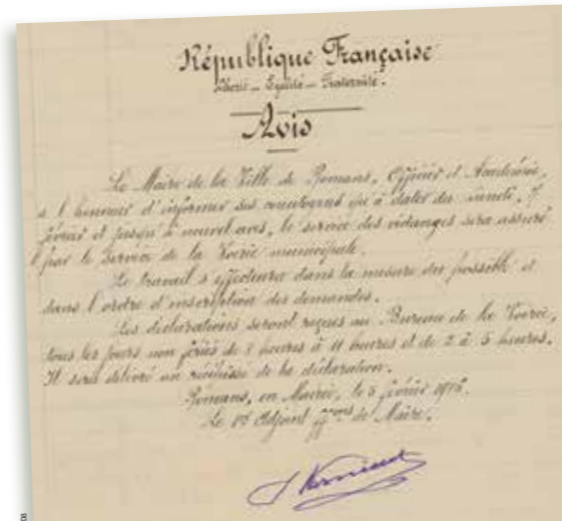 République Française
Liberté _ Egalité _ Fraternité.
Avis
Le Maire de la Ville de Romans, Officier d'Académie,
a l'honneur d'informer ses concitoyens qu'à dater du lundi, 7
février et jusqu'à nouvel avis, le service des vidanges sera assuré
par le Service de la Voirie municipale.
Le travail s'effectuera dans la mesure du possible et
dans l'ordre d'inscription des demandes.
Les déclarations seront reçues au Bureau de la Voirie,
tous les jours non fériés de 8 heures à 11 heures et de 2 à 5 heures.
Il sera délivré un récépissé de la déclaration.
Romans, en Mairie, le 5 février 1916.
Le 1er Adjoint ff.ons de Maire,